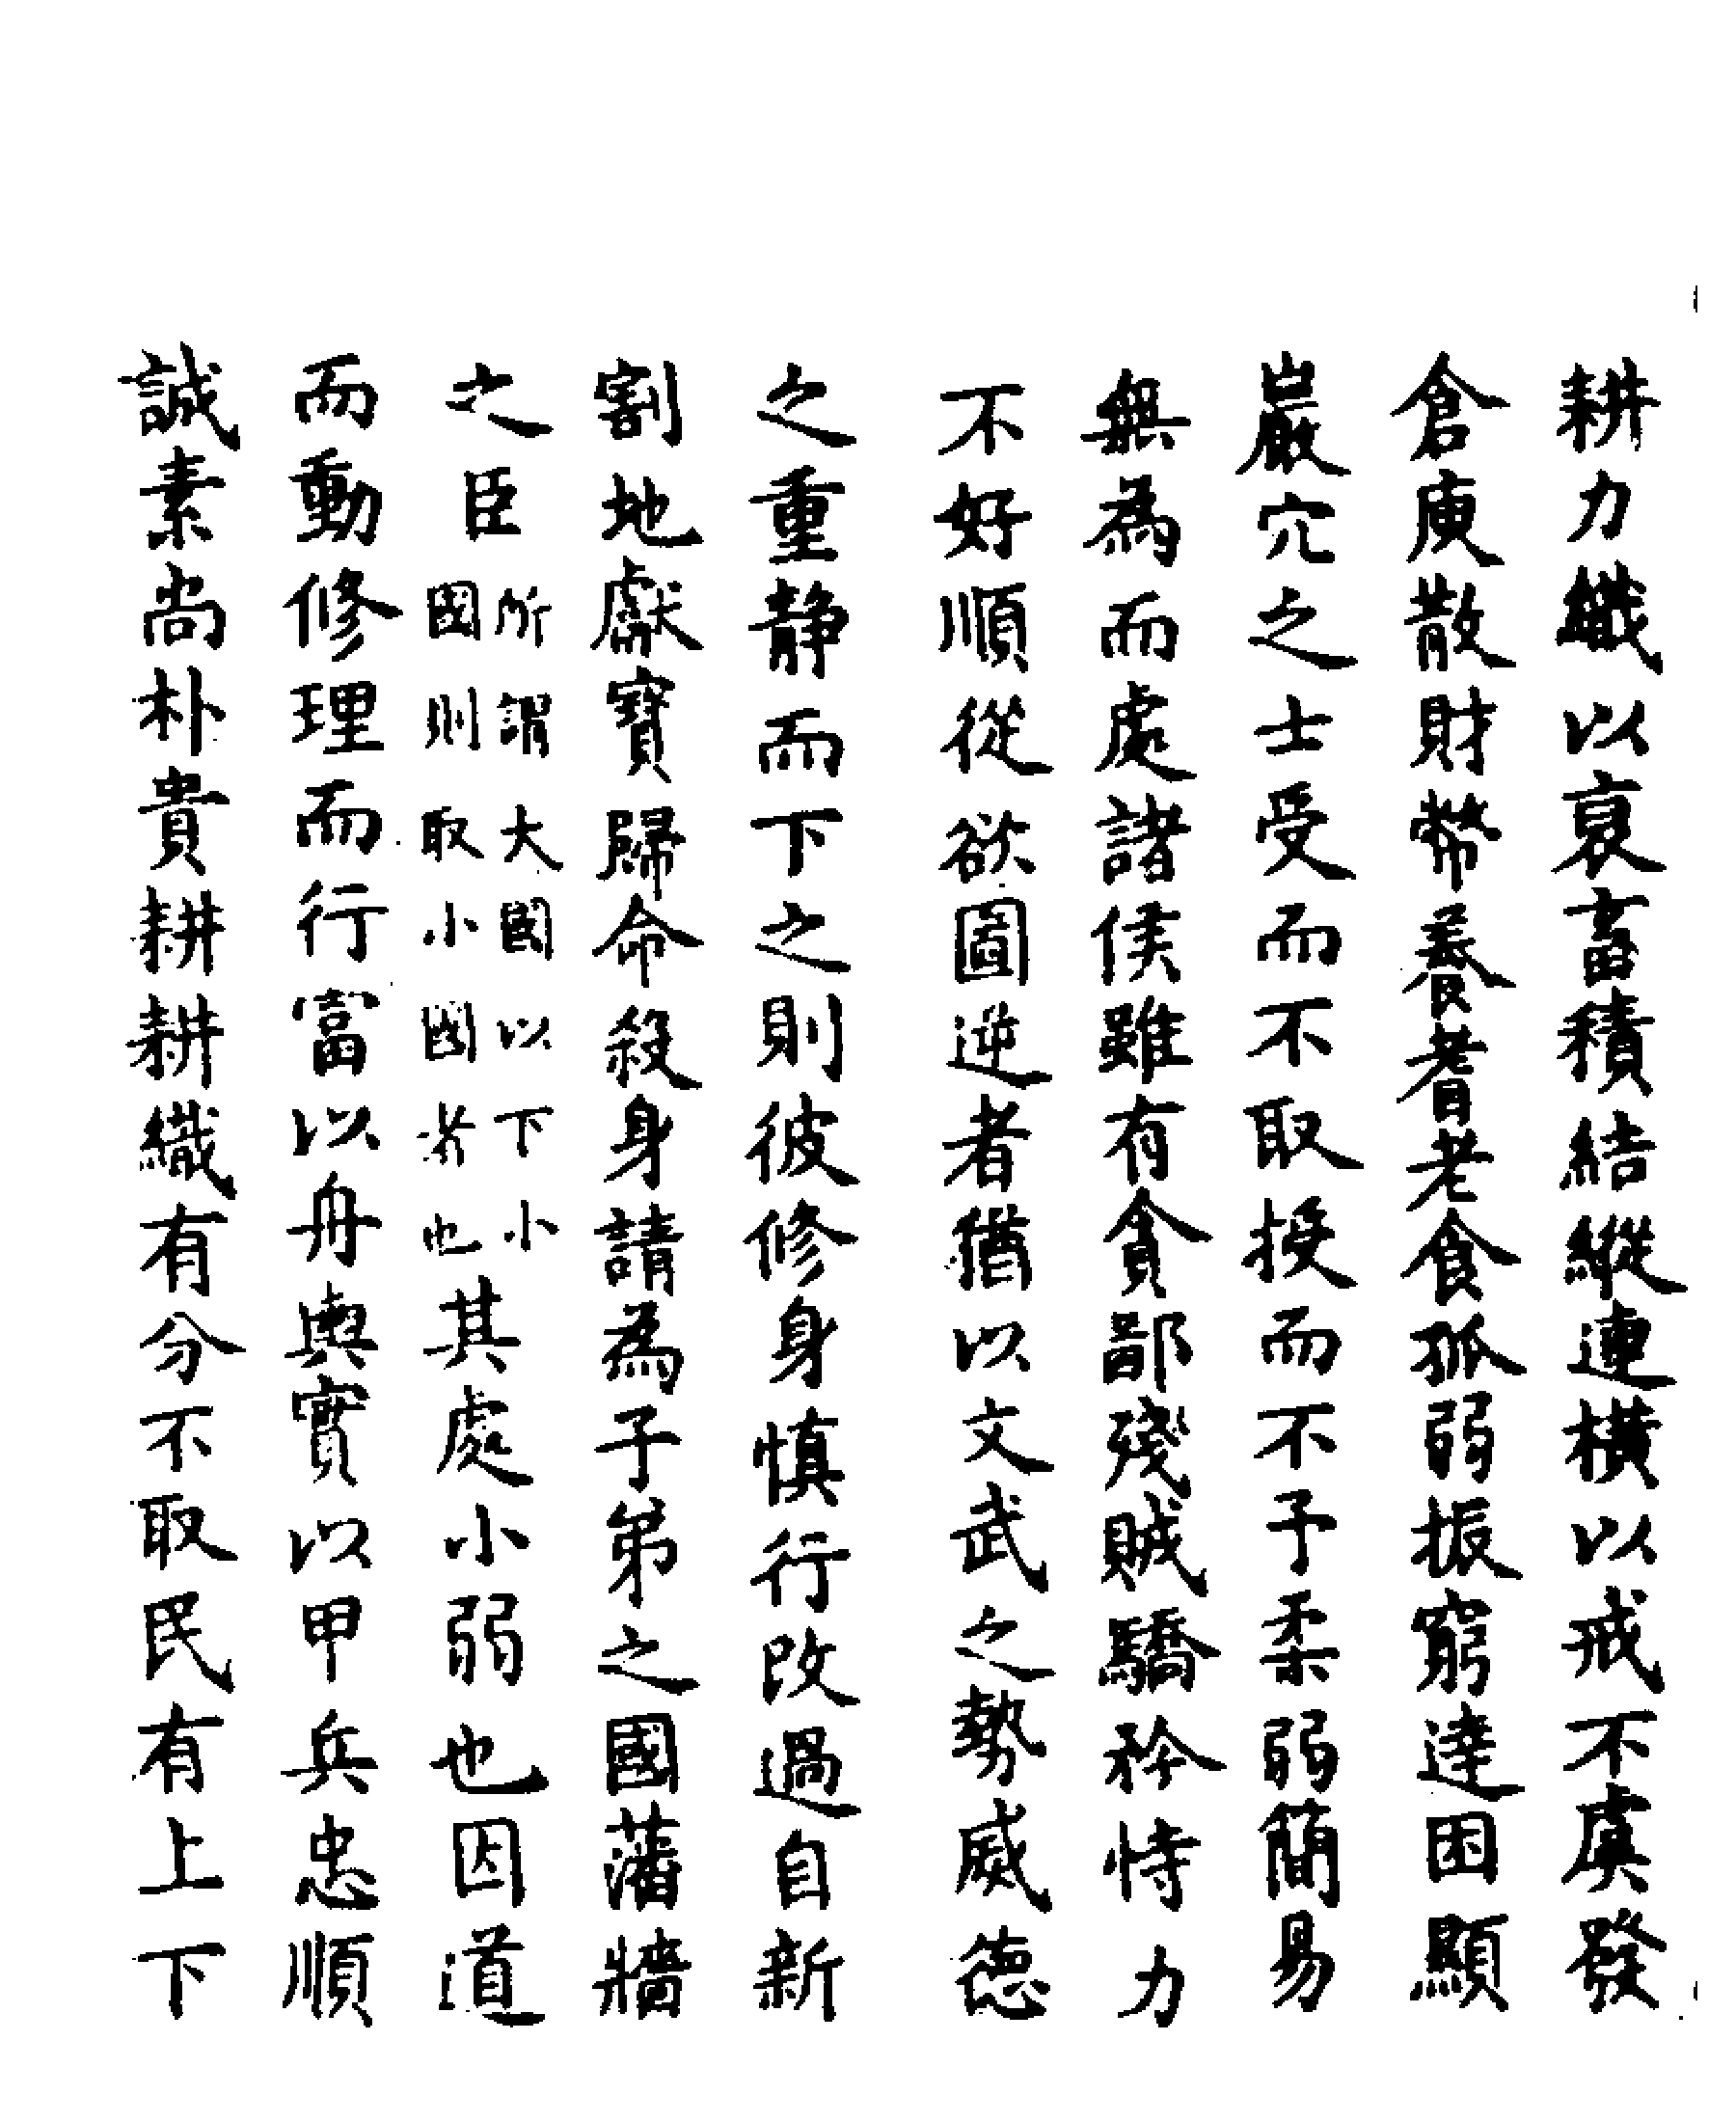 耕力織以裒畜積結縱連橫以戒不虞發
倉庾散財幣養耆老食孤弱振窮達困顯
巖穴之士受而不取授而不予柔弱簡易
無為而處諸侯雖有貪鄙殘賊驕矜恃力
不好順從欲圖逆者猶以文武之勢威德
之重静而下之則彼修身慎行改過自新
割地獻寶歸命殺身請為子弟之國藩牆
之臣所謂大國以下小國則取小國者也其處小弱也因道
而動修理而行富以舟輿實以甲兵忠順
誠素尚朴貴耕耕織有分不取民有上下